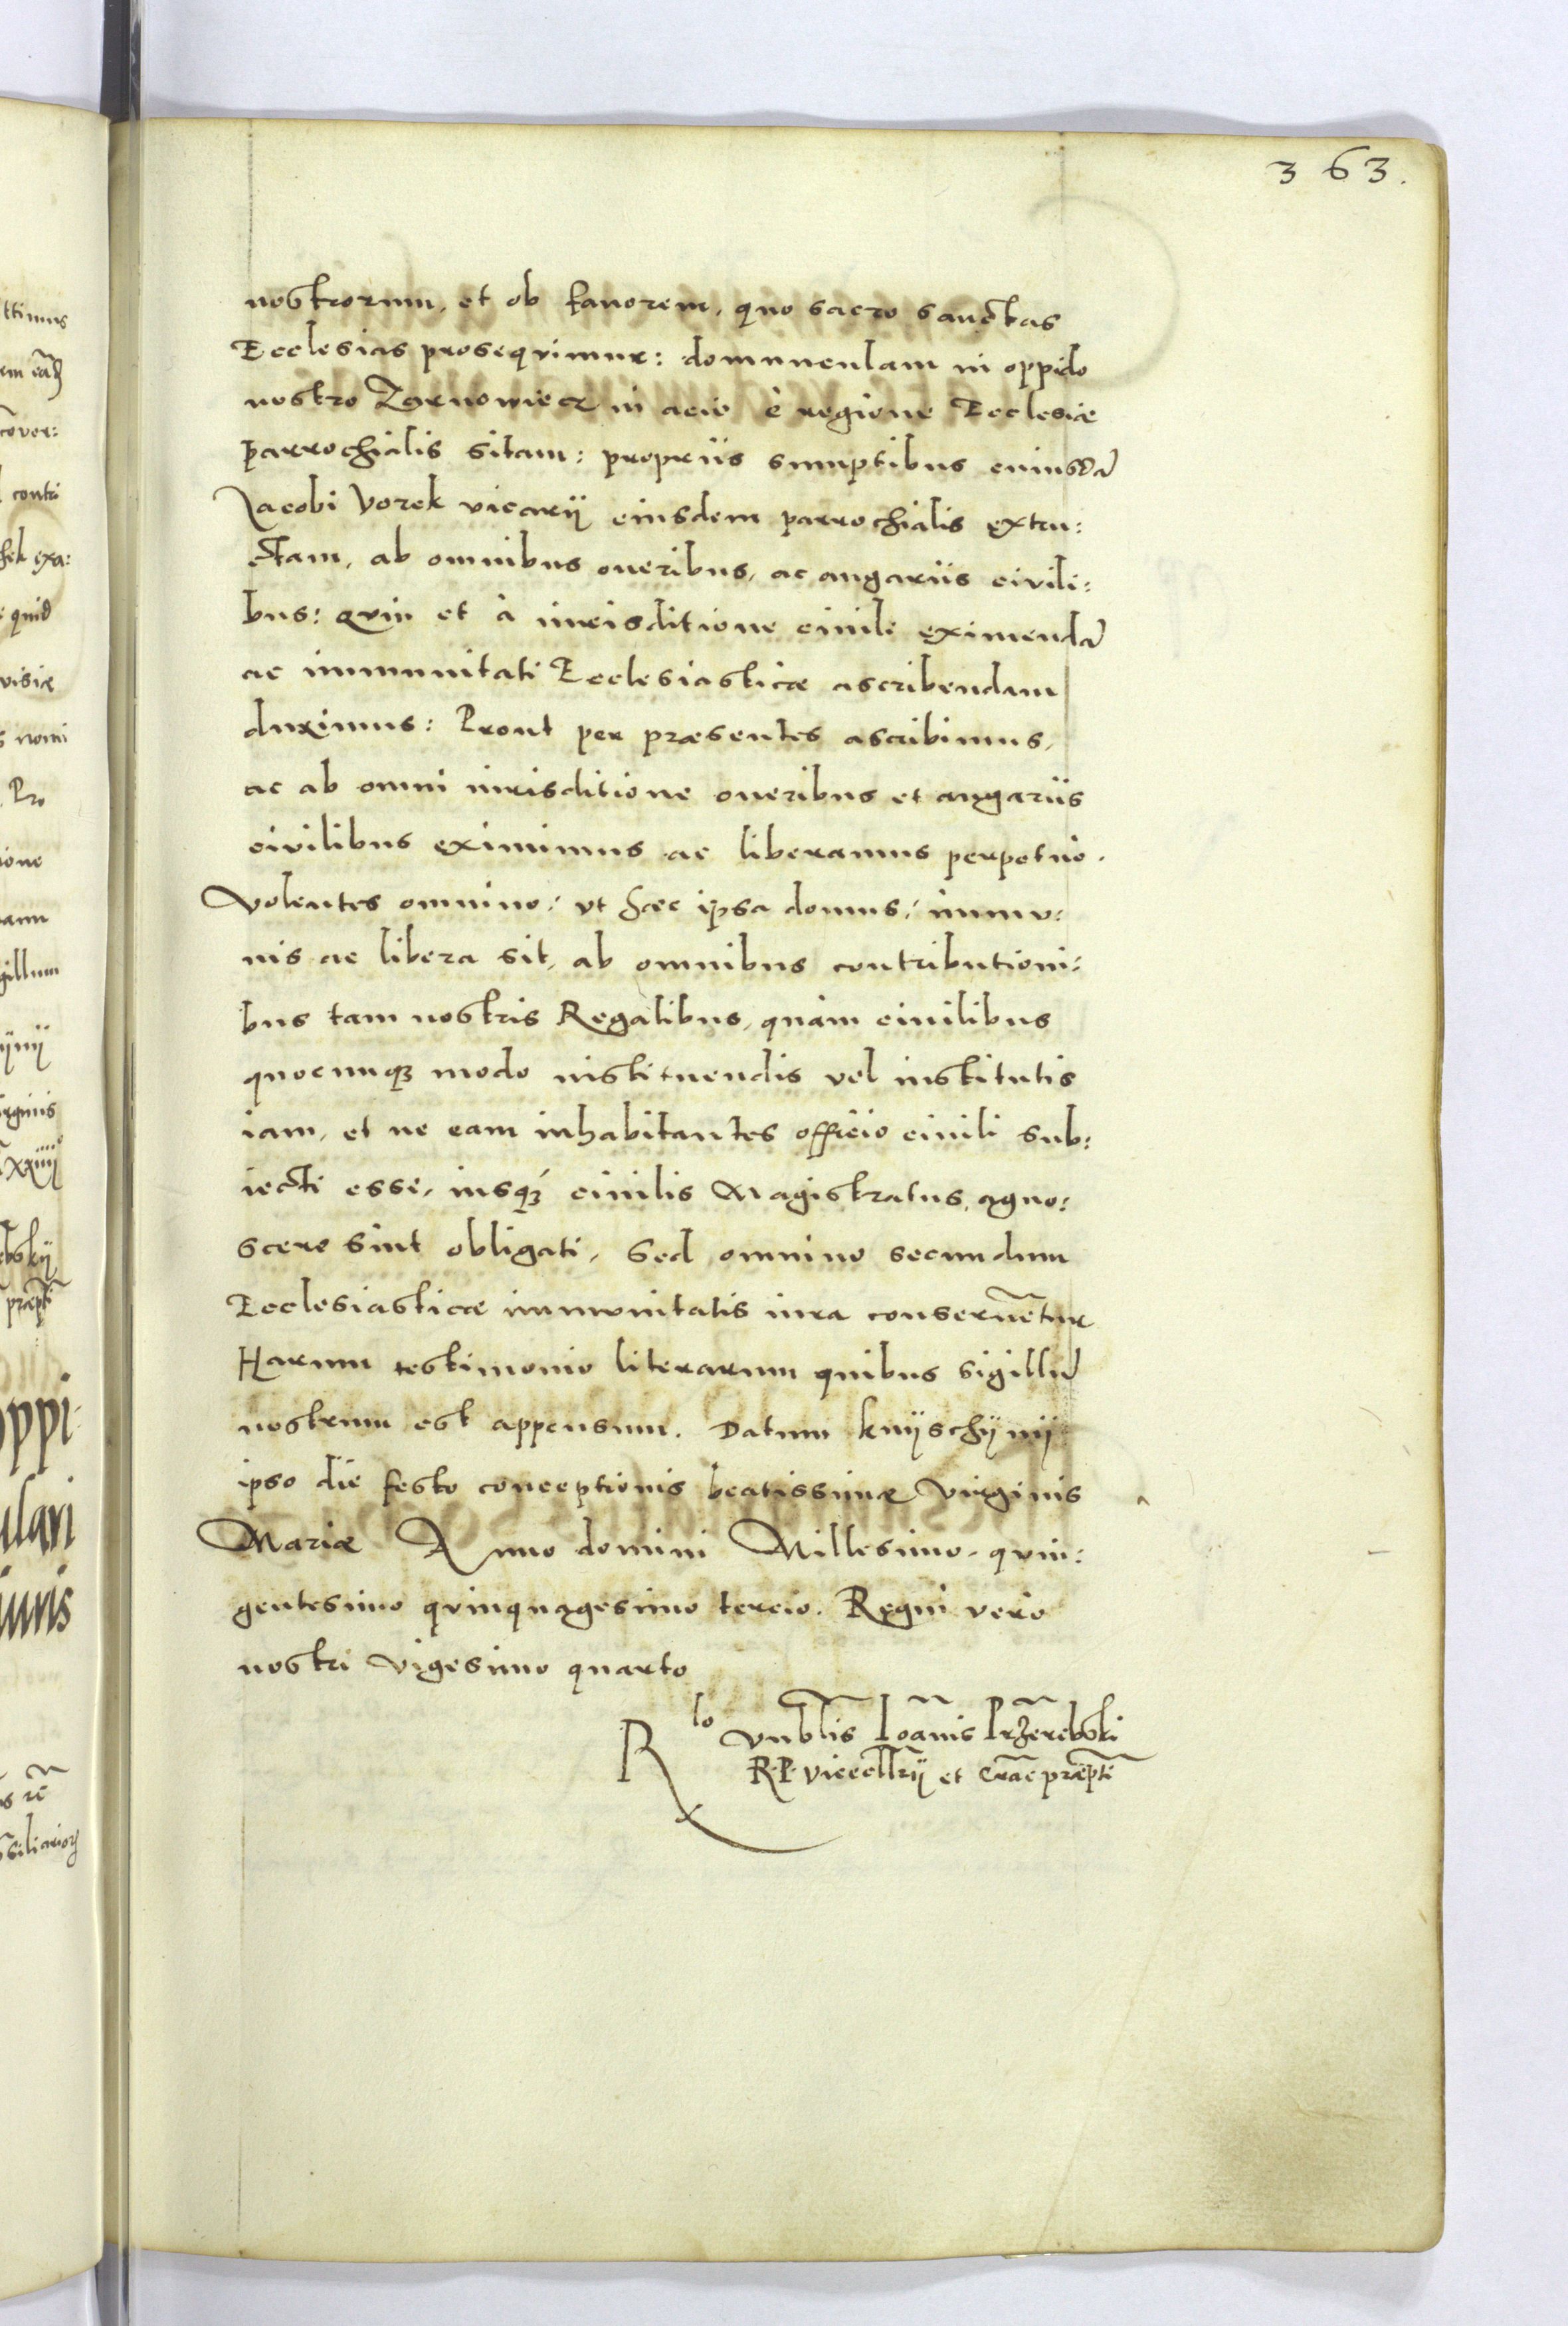 363.
nostrorum, et ob fauorem, quo sacro sanctas
Ecclesias prosequimur: domunculam in oppido
nostro Zarnowiecz in acie è regione Ecclesiæ
parrochialis sitam: proprijs sumptibus cuiusdã
Jacobi Vorek vicarij eiusdem parrochialis extru:
ctam, ab omnibus oneribus, ac angarijs civili:
bus: quin et à iurisditione ciuili eximendã
ac immunitati Ecclesiasticæ ascribendam
duximus: Prout per præsentes ascribimus,
ac ab omni iurisditione oneribus et angarijs
civilibus eximimus ac liberamus perpetuò.
Volentes omnino: vt hæc ipsa domus: immu:
nis ac libera sit, ab omnibus contributioni:
bus tam nostris Regalibus, quàm ciuilibus
quocunqȝ modo instituendis vel institutis
iam, et ne eam inhabitantes officio ciuili sub:
iecti esse, iusqȝ ciuilis Magistratus, agno:
scere sint obligati, Sed omnino secundum
Ecclesiasticæ immunitatis iura conseruẽtur
Harum testimonio literarum quibus sigillũ
nostrum est appensum. Datum knÿschÿnÿ
ipso die festo conceptionis beatissimæ Virginis
Mariæ Anno domini Millesimo quin:
gentesimo quinquagesimo tercio. Regni vero
nostri vigesimo quarto
R lo Vnblis Ioãnis Przerebski
R. P. vicecllrij et Crac præpti
ttimus
cõuer:
contri
fek exa:
quid
visiæ
nomi
Pro
ione
gillum
rginis
xxiiij
ebskij
præpti
oppi
ulari
iuris